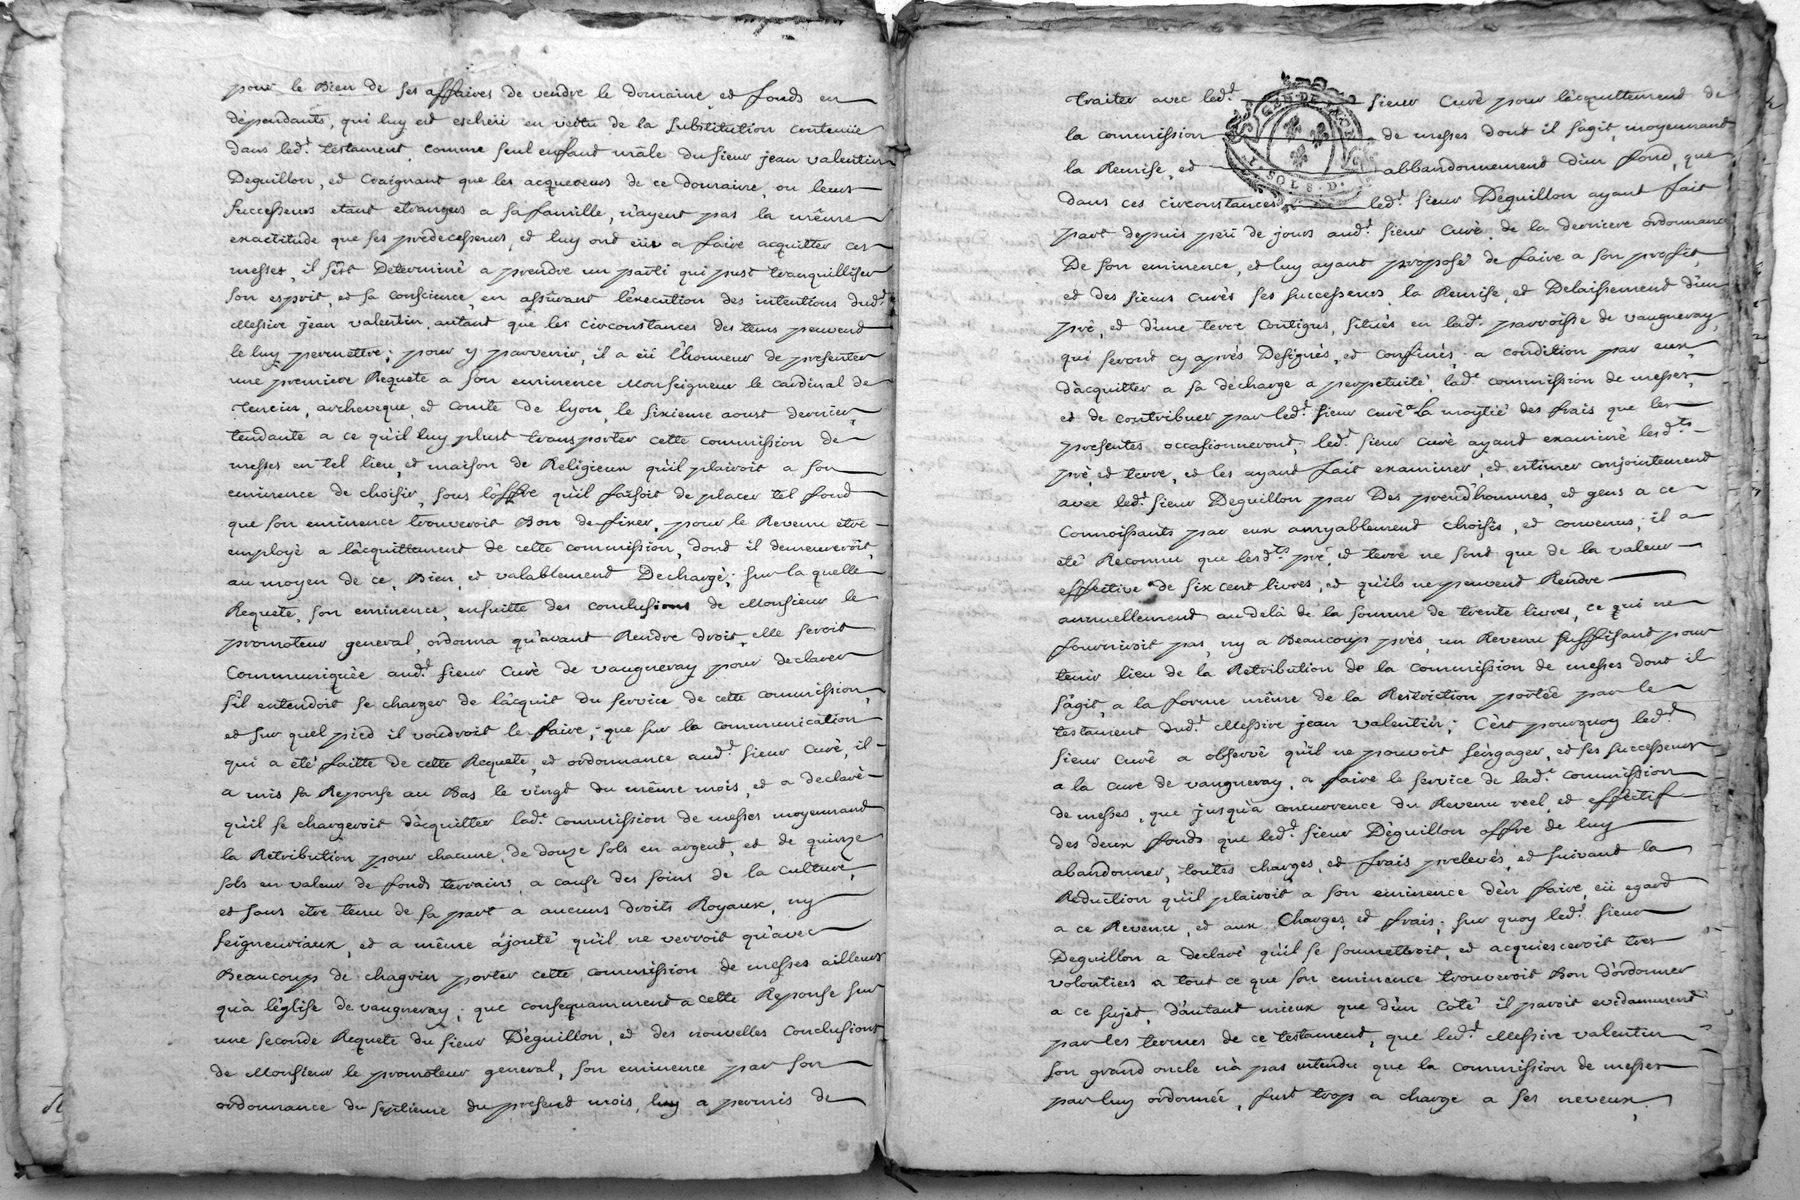 pour le Bien de ses affaires de vendre le domaine, et fonds en
dépendants, qui luy est escheü en vertu de la substitution contenüe
dans led.t testament, comme seul enfant mâle du sieur jean valentin
Deguillon, et Craignant que les acquereurs de ce domaine, ou leurs
successeurs etant etrangers a sa famille, n'ayent pas la même
exactitude que ses prédecesseurs, et luy ont eüe a faire acquitter ces
messes, il s'est Determiné a prendre un parti qui pust tranquilliser
son esprit, et sa conscience, en assûrant l'execution des intentions dud.t
Messire jean valentin, autant que les circonstances des tems peuvent
le luy permettre; pour y parvenir, il a eü l'honneur de presenter
une premiere Requete a son eminence Monseigneur le cardinal de
Tencin, archeveque, et Comte de lyon, le sixieme aoust dernier,
tendante a ce qu'il luy plust transporter cette commission de
messes en tel lieu, et maison de Religieux qu'il plairoit a son
eminence de choisir, sous l'offre qu'il faisoit de placer tel fond
que son eminence trouveroit Bon de fixer, pour le Revenu être
employé a l'acquittement de cette commission, dont il demeureroit,
au moyen de ce, Bien, et valablement Dechargé; sur la quelle
Requete, son eminence, ensuitte des conclusions de Monsieur le
promoteur general, ordonna qu'avant Rendre droit, elle seroit
Communiquée aud.t sieur Curé de vaugneray pour declarer
s'il entendoit se charger de l'acquit du service de cette commission,
et sur quel pied il voudroit le faire; que sur la communication
qui a été faitte de cette Requete, et ordonnance aud.t sieur Curé, il
a mis sa Reponse au Bas le vingt du même mois, et a declaré
qu'il se chargeroit d'acquitter lad.e commission de messes moyennant
la Retribution pour chacune, de douze sols en argent, et de quinze
sols en valeur de fonds terrains, a cause des soins de la culture,
et sans etre tenu de sa part a aucuns droits Royaux, ny
seigneuriaux, et a même ajouté qu'il ne verroit qu'avec
Beaucoup de chagrin porter cette commission de messes ailleurs
qu'à l'église de vaugneray; que consequamment a cette Reponse sur
une seconde Requete du sieur Déguillon, et des nouvelles Conclusions
de Monsieur le promoteur general, son eminence par son
ordonnance du septieme du present mois, luy a permis de
traiter avec led.t sieur Curé pour l'acquittement de
la commission de messes dont il s'agit, moyennant
la Remise, et abbandonnement d'un fond, que
dans ces circonstances led.t sieur Déguillon ayant fait
part depuis peü de jours aud.t sieur Curé, de la derniere ordonnance
De son eminence, et luy ayant proposé de faire a son profit,
et des sieurs Curés ses successeurs, la Remise, et Delaissement d'un
pré, et d'une terre Contigus, situés en lad.e parroisse de vaugneray,
qui seront cy après Designés, et confinés, a condition par eux,
d'acquitter a sa décharge a perpetuité, lad.e commission de messes,
et de contribuer par led.t sieur Curé a la moytié des frais que les
presentes occasionneront, led.t sieur Curé ayant examiné lesd.ts
pré, et terre, et les ayant fait examiner, et estimer conjointement
avec led.t sieur Deguillon par Des preud'hommes, et gens a ce
Connoissants par eux amyablement choisis, et convenus, il a
été Reconnu que lesd.ts pré, et terre ne sont que de la valeur
effective de six cent livres, et qu'ils ne peuvent Rendre
annuellement audelà de la somme de trente livres, ce qui ne
fourniroit pas, ny a Beaucoup prés, un Revenu suffisant pour
tenir lieu de la Retribution de la commission de messes dont il
s'agit, a la forme même de la Restriction portée par le
testament dud.t Messire jean valentin; C'est pourquoy led.t
sieur Curé a observé qu'il ne pouvoit s'engager, et ses successeurs
a la cure de vaugneray, a faire le service de lad.e commission
de messes, que jusqu'à concurrence du Revenu reel, et effectif
des deux fonds que led.t sieur Déguillon offre de luy
abandonner, toutes charges, et frais prelevés, et suivant la
Réduction qu'il plairoit a son eminence d'en faire, eü egard
a ce Revenu, et aux Charges, et frais; sur quoy led.t sieur
Deguillon a declaré qu'il se soumettroit, et acquiesceroit tres
volontiers a tout ce que son eminence trouveroit Bon d'ordonner
a ce sujet, d'autant mieux que d'un côté il paroit evidamment
par les termes de ce testament, que led.t Messire valentin
son grand oncle n'a pas entendu que la commission de messes
par luy ordonnée, fust trop a charge a ses neveux,